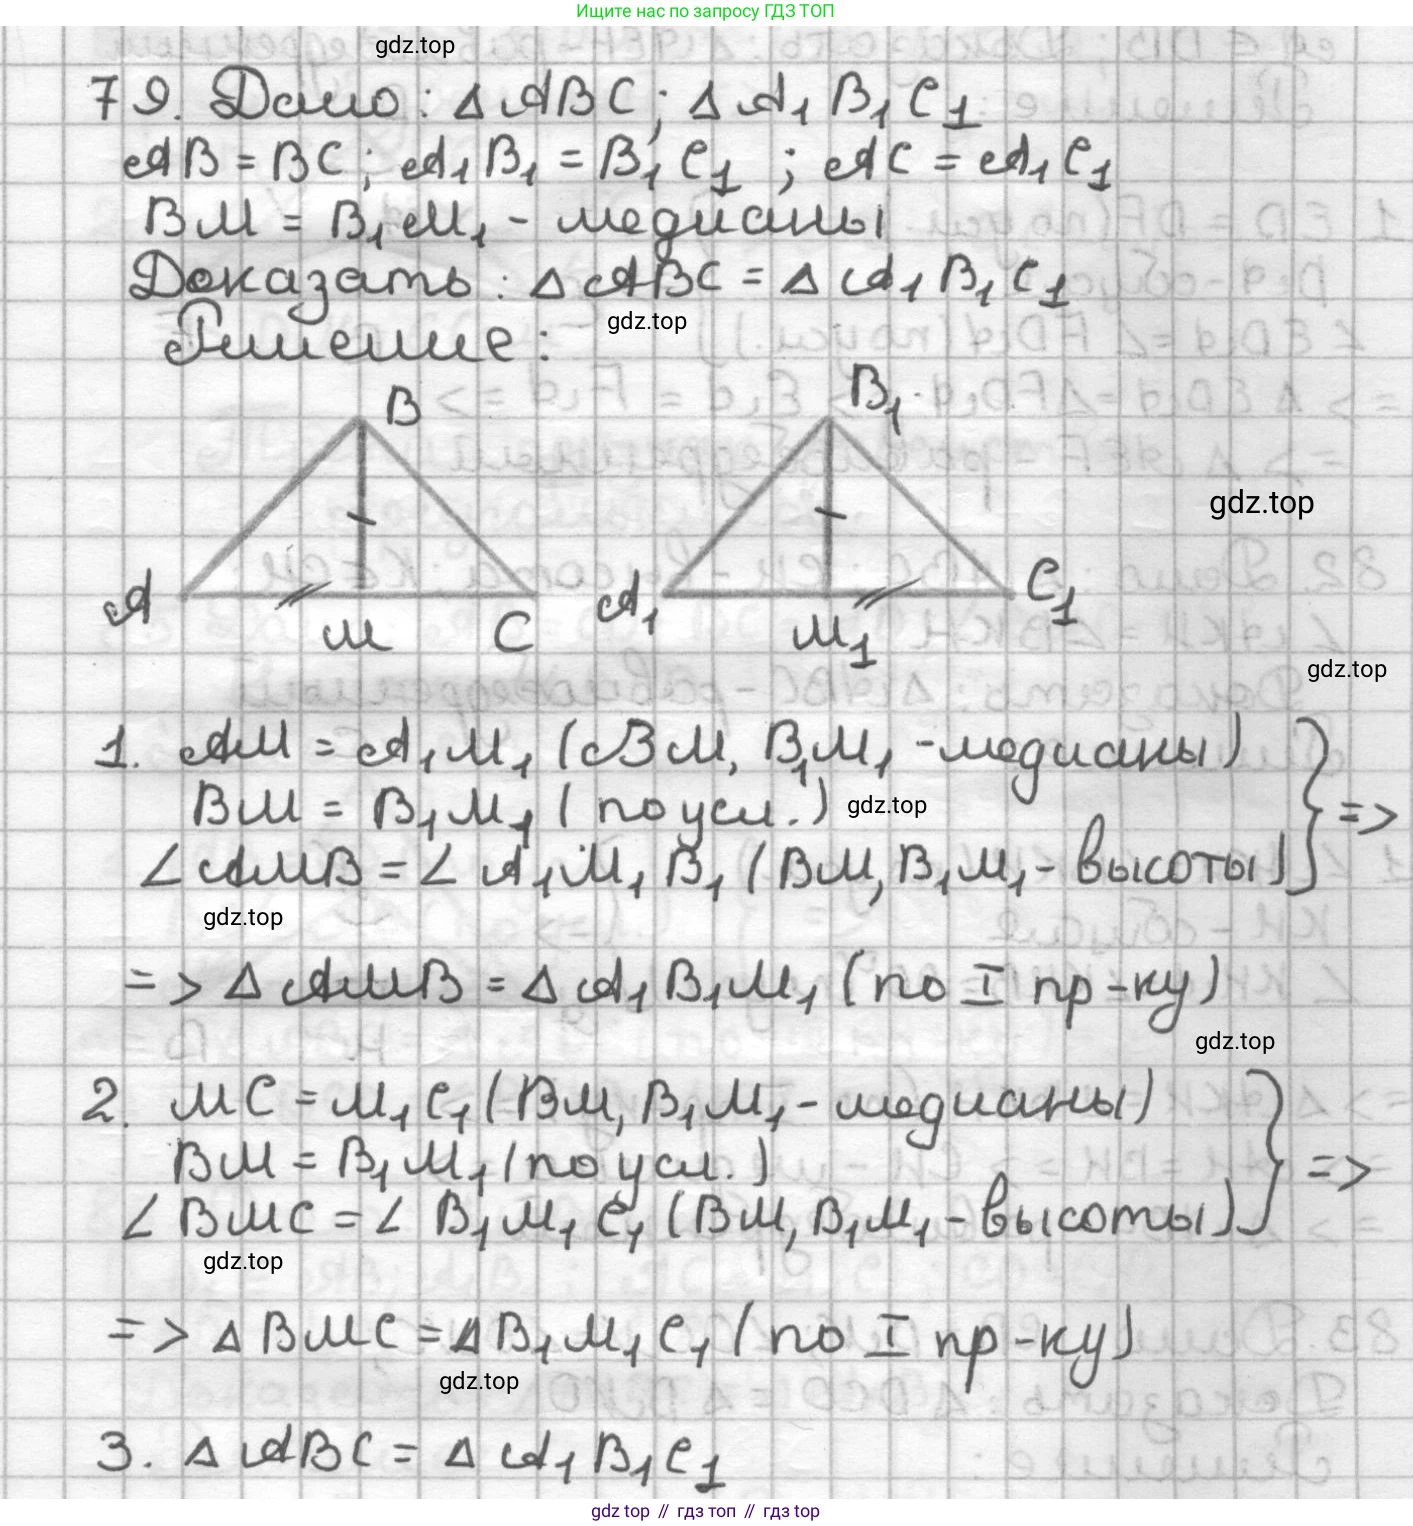 Ищите нас по запросу ГДЗ ТОП
gdz.top
79. Дано: Δ ABC; Δ A₁B₁C₁
AB = BC; A₁B₁ = B₁C₁; AC = A₁C₁
BM = B₁M₁ - медианы
Доказать: Δ ABC = Δ A₁B₁C₁
gdz.top
Решение:
B B₁
gdz.top
A M C A₁ M₁ C₁
gdz.top
1. AM = A₁M₁ (BM, B₁M₁ - медианы)
BM = B₁M₁ (по усл.) =>
gdz.top
∠AMB = ∠A₁M₁B₁ (BM, B₁M₁ - высоты)
gdz.top
=> Δ AMB = Δ A₁B₁M₁ (по I пр-ку)
gdz.top
2. MC = M₁C₁ (BM, B₁M₁ - медианы)
BM = B₁M₁ (по усл.) =>
∠BMC = ∠B₁M₁C₁ (BM, B₁M₁ - высоты)
gdz.top
=> Δ BMC = Δ B₁M₁C₁ (по I пр-ку)
gdz.top
3. Δ ABC = Δ A₁B₁C₁
gdz top // гдз топ // гдз top